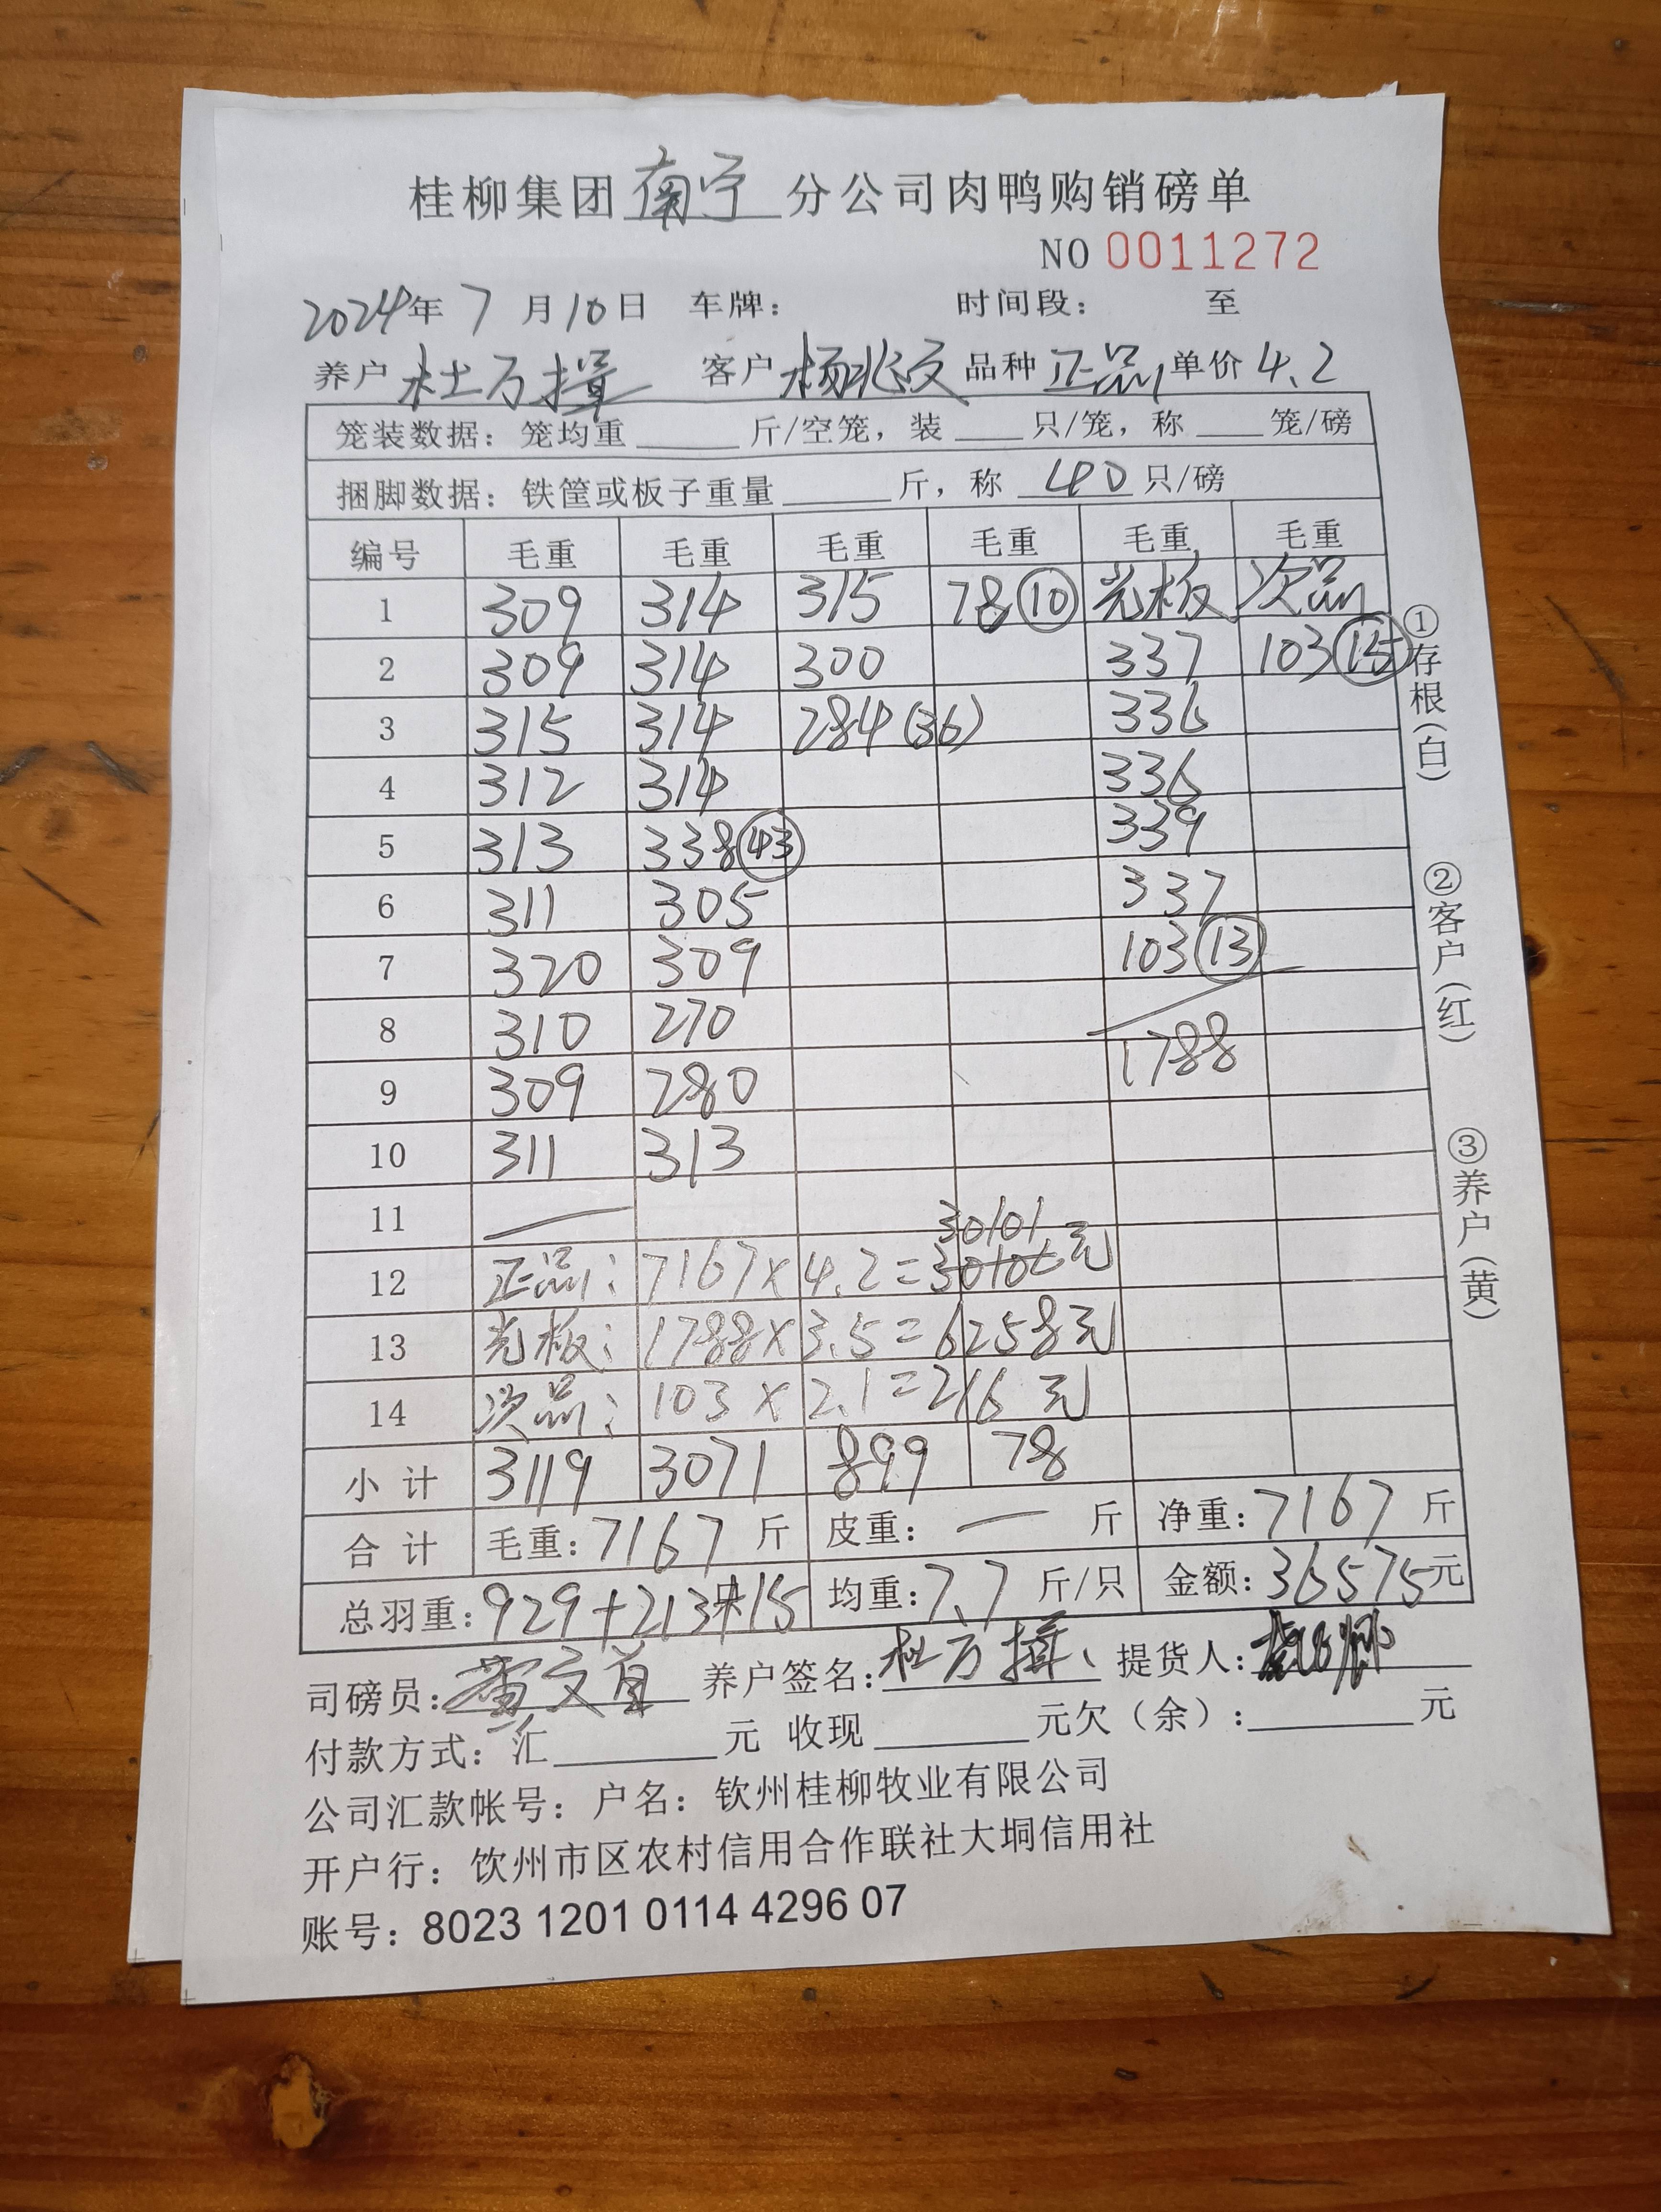 桂柳集团南宁分公司肉鸭购销磅单
NO 0011272
2024年 7 月 10 日 车牌： 时间段： 至
养户 杜万揖 客户 杨兆文 品种 正品 单价 4.2
笼装数据：笼均重 斤/空笼，装 只/笼，称 笼/磅
捆脚数据：铁筐或板子重量 斤，称 40 只/磅
编号 毛重 毛重 毛重 毛重 毛重 毛重
1 309 314 315 78 ⑩ 光板 次品
2 309 314 300 337 103 ⑮
3 315 314 284 (36) 336
4 312 314 336
5 313 338 ㊸ 339
6 311 305 337
7 320 309 103 ⑬
8 310 270
9 309 280 1788
10 311 313
11 — 30101
12 正品：7167×4.2= 元
13 光板：1788×3.5=6258元
14 次品：103×2.1=216元
小计 3119 3071 899 78
合计 毛重：7167 斤 皮重：— 斤 净重：7167 斤
总羽重：929+213+15 均重：7.7 斤/只 金额：36575元
司磅员：黄文 养户签名：杜万揖 提货人：
付款方式：汇 元 收现 元欠（余）： 元
公司汇款帐号：户名：钦州桂柳牧业有限公司
开户行：饮州市区农村信用合作联社大垌信用社
账号：8023 1201 0114 4296 07
①存根(白)
②客户(红)
③养户(黄)